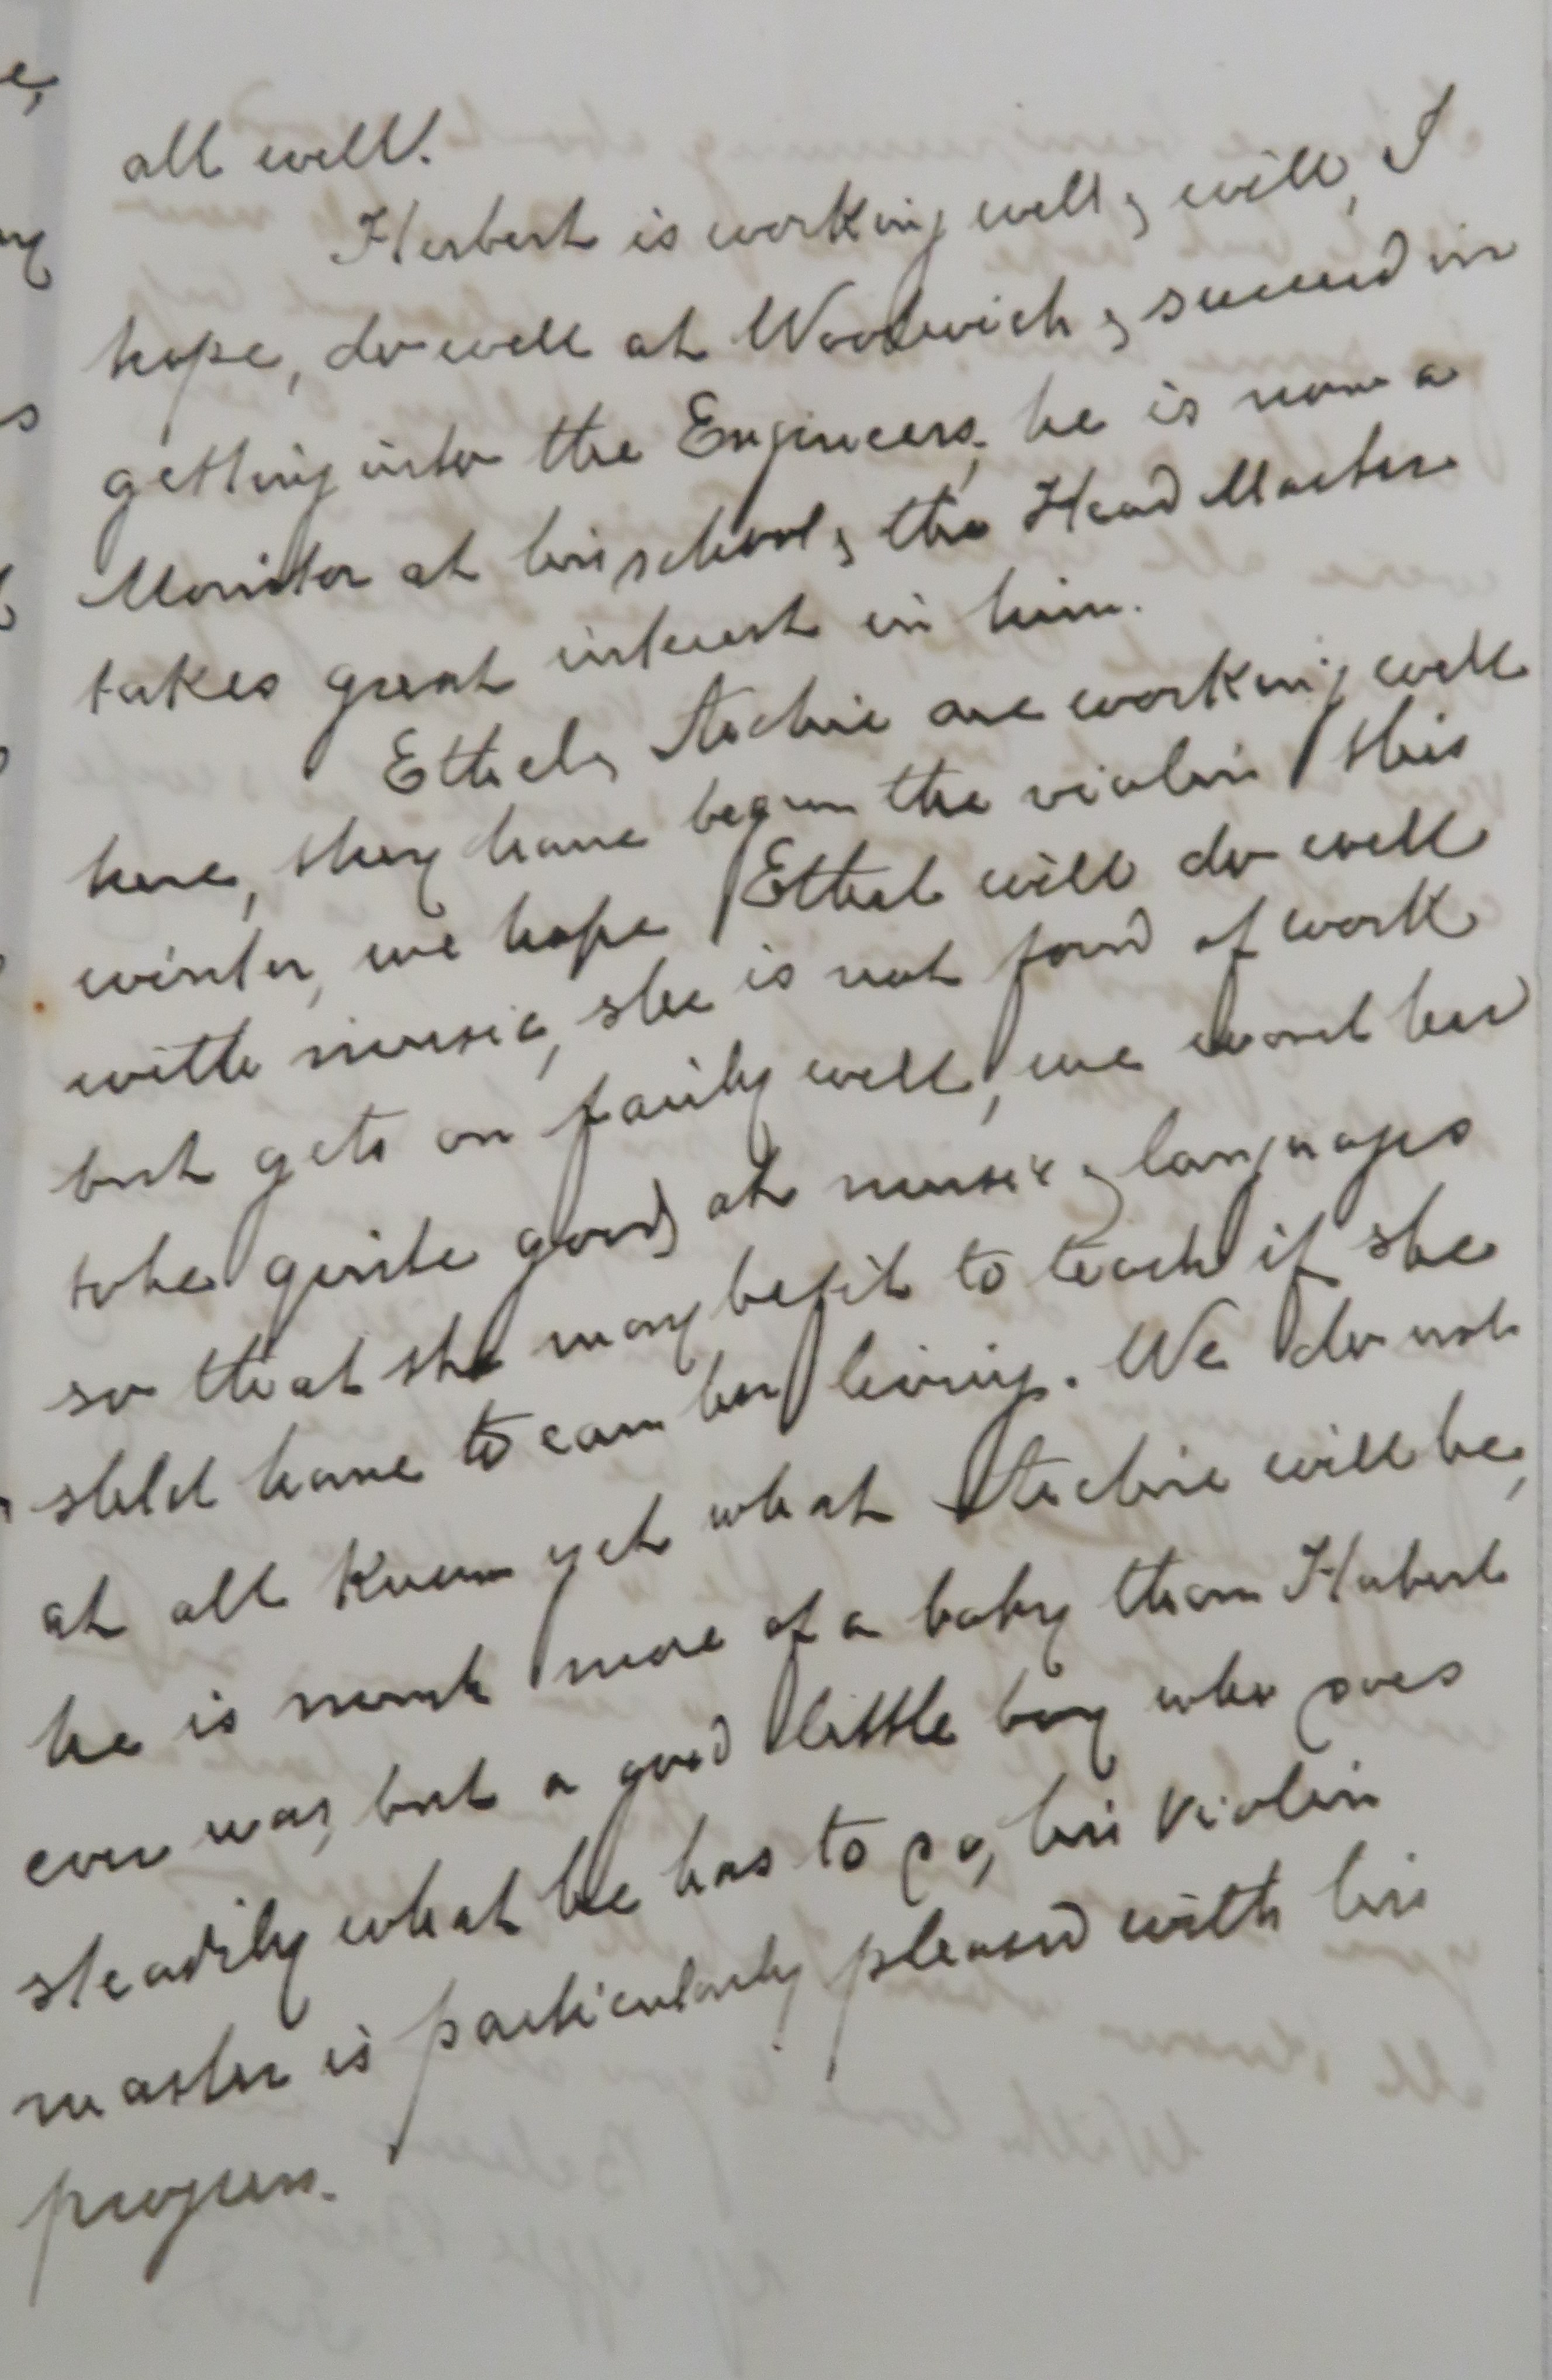 all well.
Herbert is working well & will, I
hope, do well at Woolwich & succeed in
getting into the Engineers, he is now a
Monitor at his school & the Head Master
takes great interest in him.
Ethel & Archie are working well
here, they have begun the violin this
winter, we hope Ethel will do well
with music, she is not fond of work
but gets on fairly well, we want her
to be quite good at music & languages
so that she may be fit to teach if she
shld have to earn her living. We do not
at all know yet what Archie will be,
he is much more of a baby than Herbert
ever was, but a good little boy who does
steadily what he has to do, his violin
master is particularly pleased with his
progress.